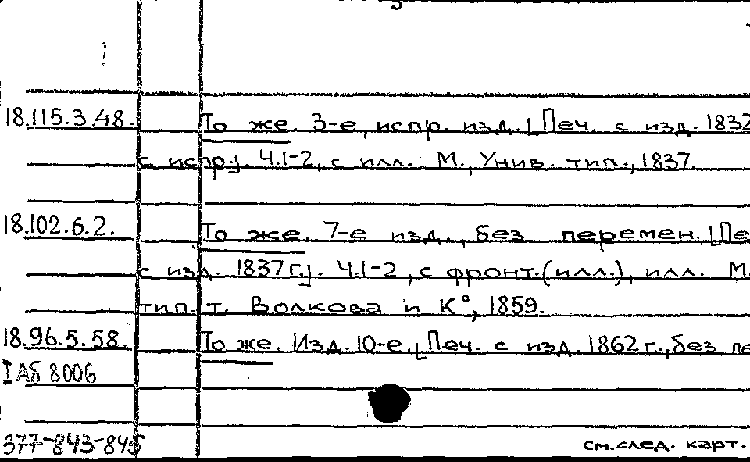 18.115.3.48. То же. 3-е, испр. изд. [Печ. с изд. 1832
с испр.]. Ч.1-2, с илл. М., Унив. тип., 1837.
18.102.6.2. То же. 7-е изд., без перемен. [Пе
с изд. 1837 г.]. Ч.1-2, с фронт.(илл.), илл. М.
тип. т. Волкова и К°, 1859.
18.96.5.58. То же. Изд. 10-е. [Печ. с изд. 1862 г., без пе
I АБ 8006
377-843-845 см. след. карт.